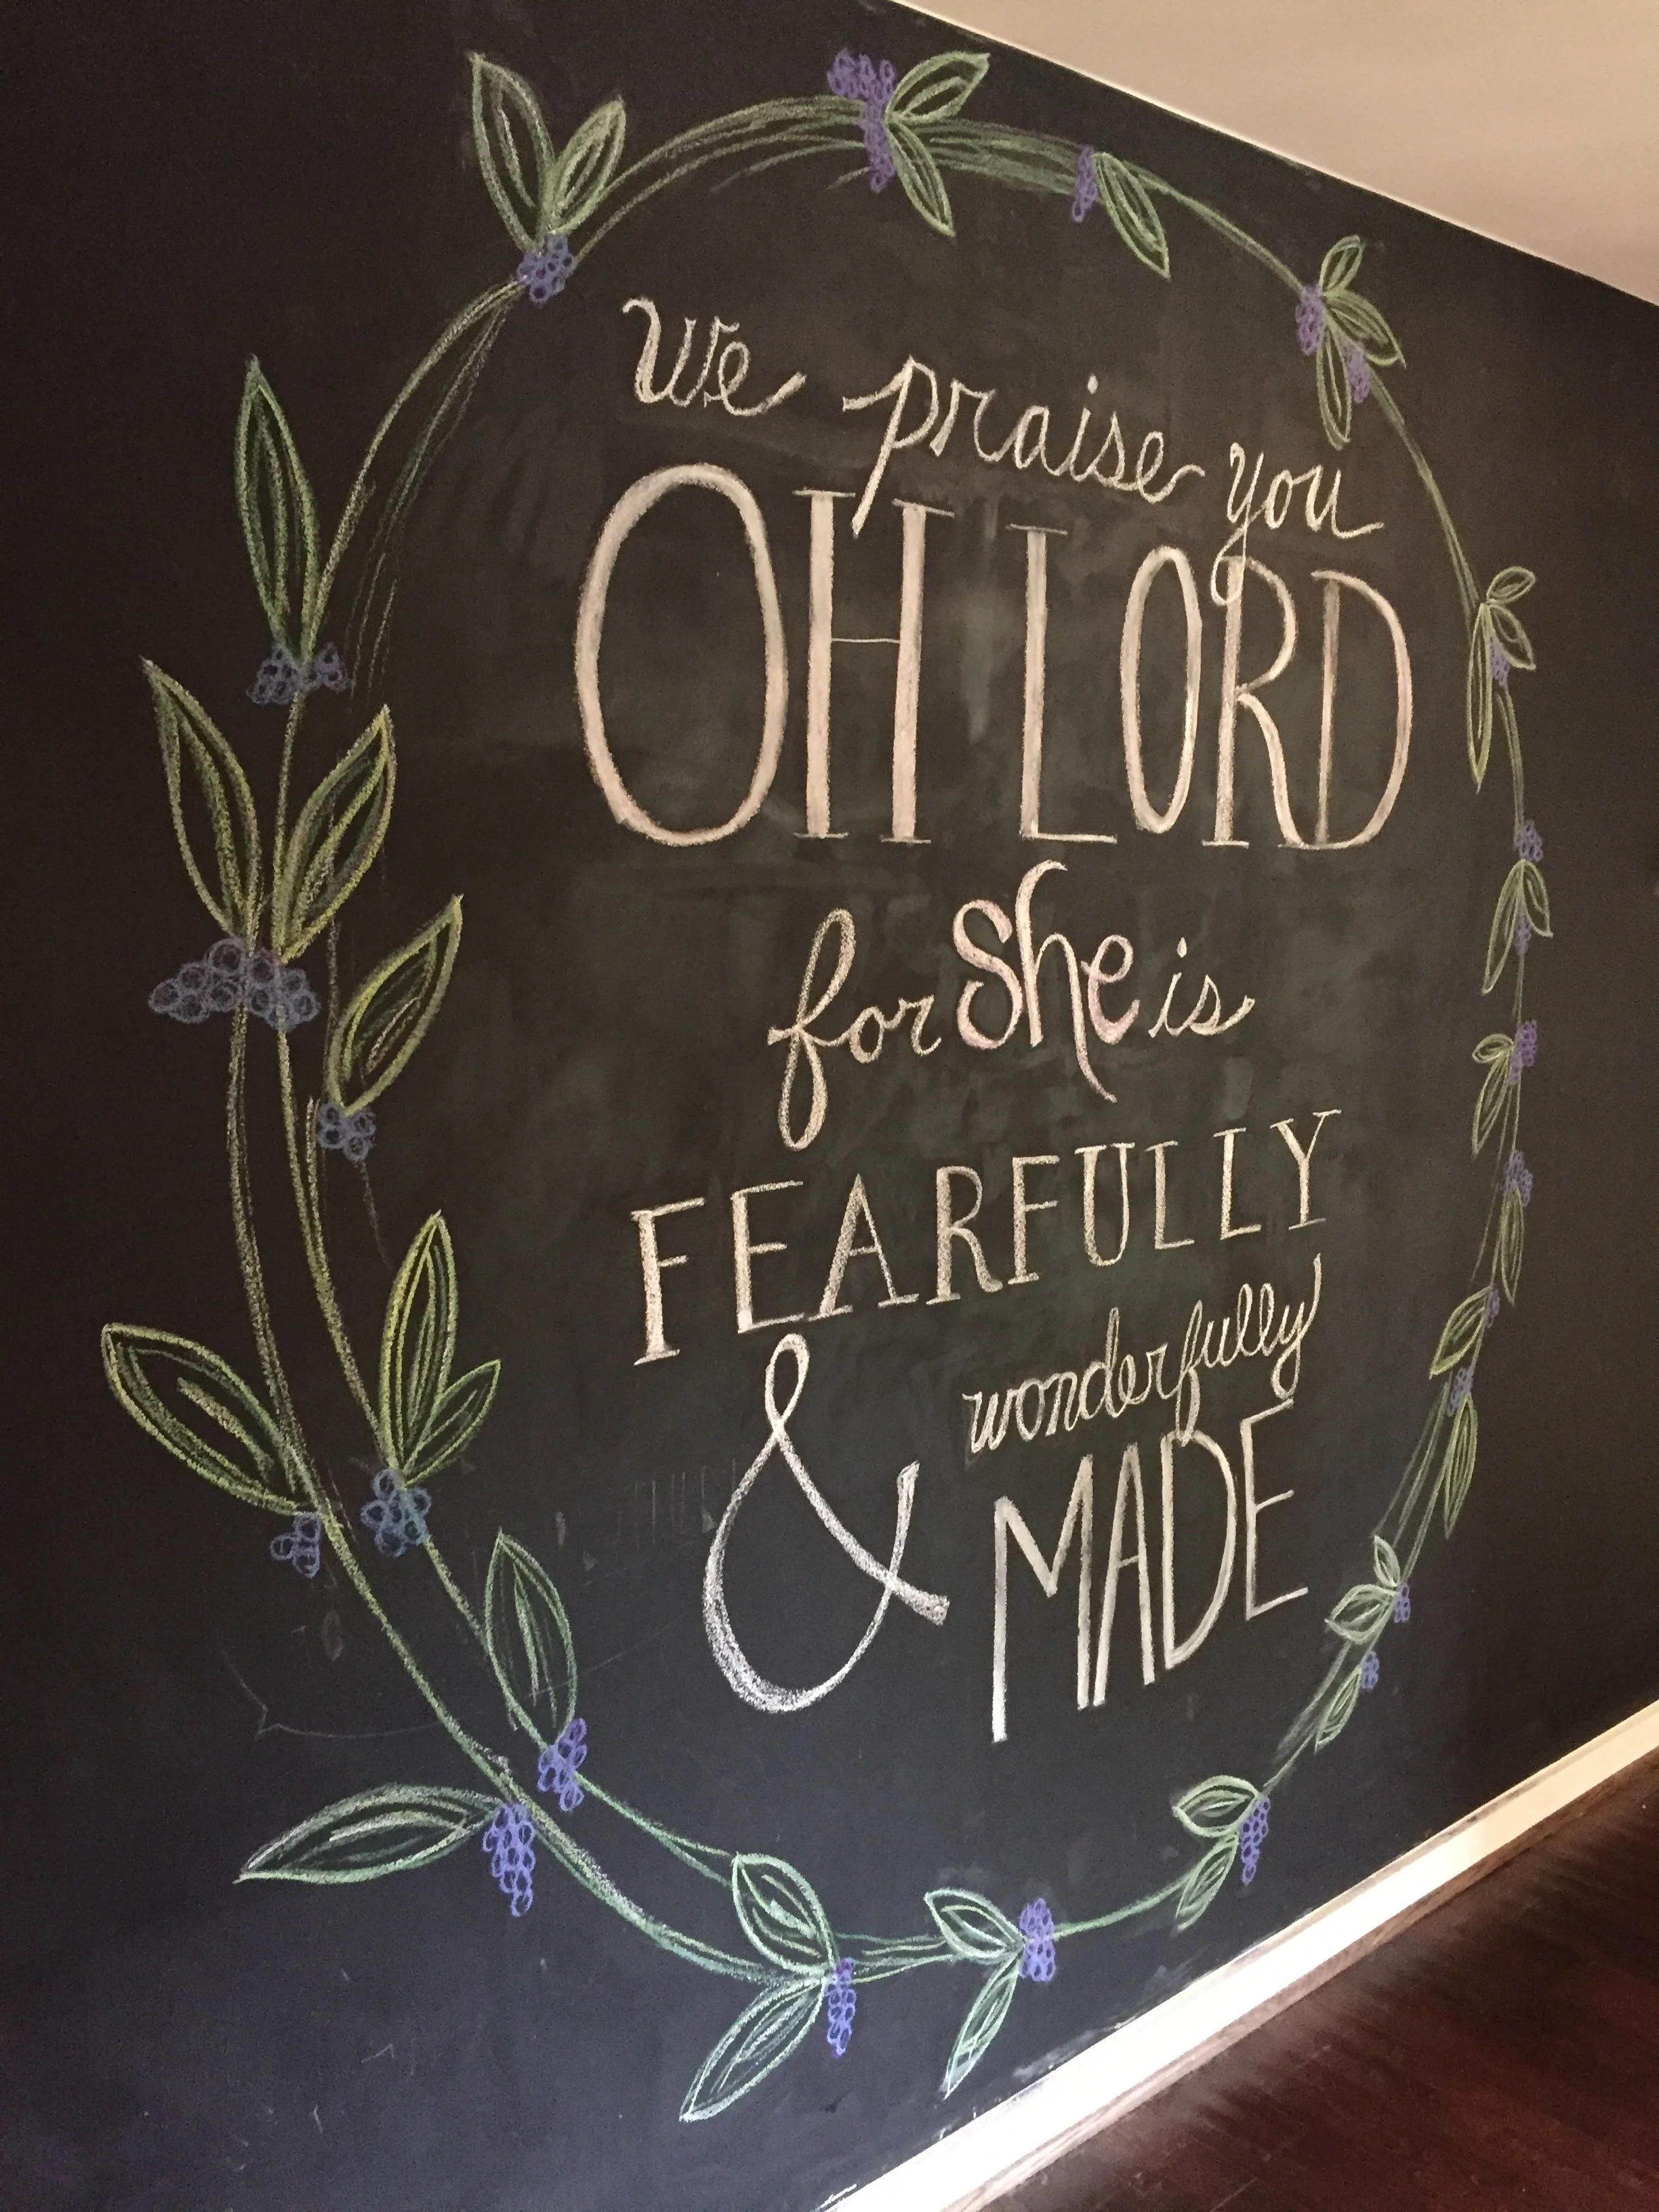 We praise you
OH LORD
for she is
FEARFULLY
& wonderfully
MADE